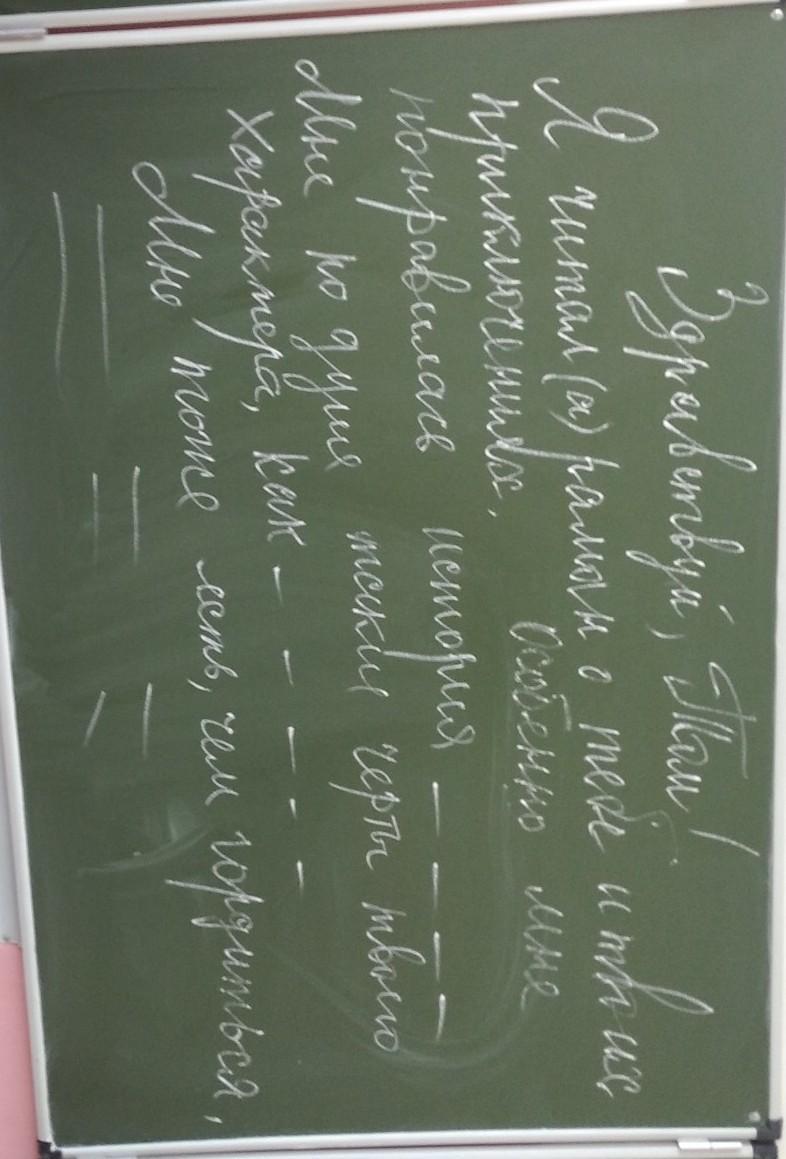 Здравствуй, Том!
Я читал(а) роман о тебе и твоих
приключениях. Особенно мне
понравилась история — — — —
Мне по душе такие черты твоего
характера, как — — — — —
Мне тоже есть, чем гордиться,